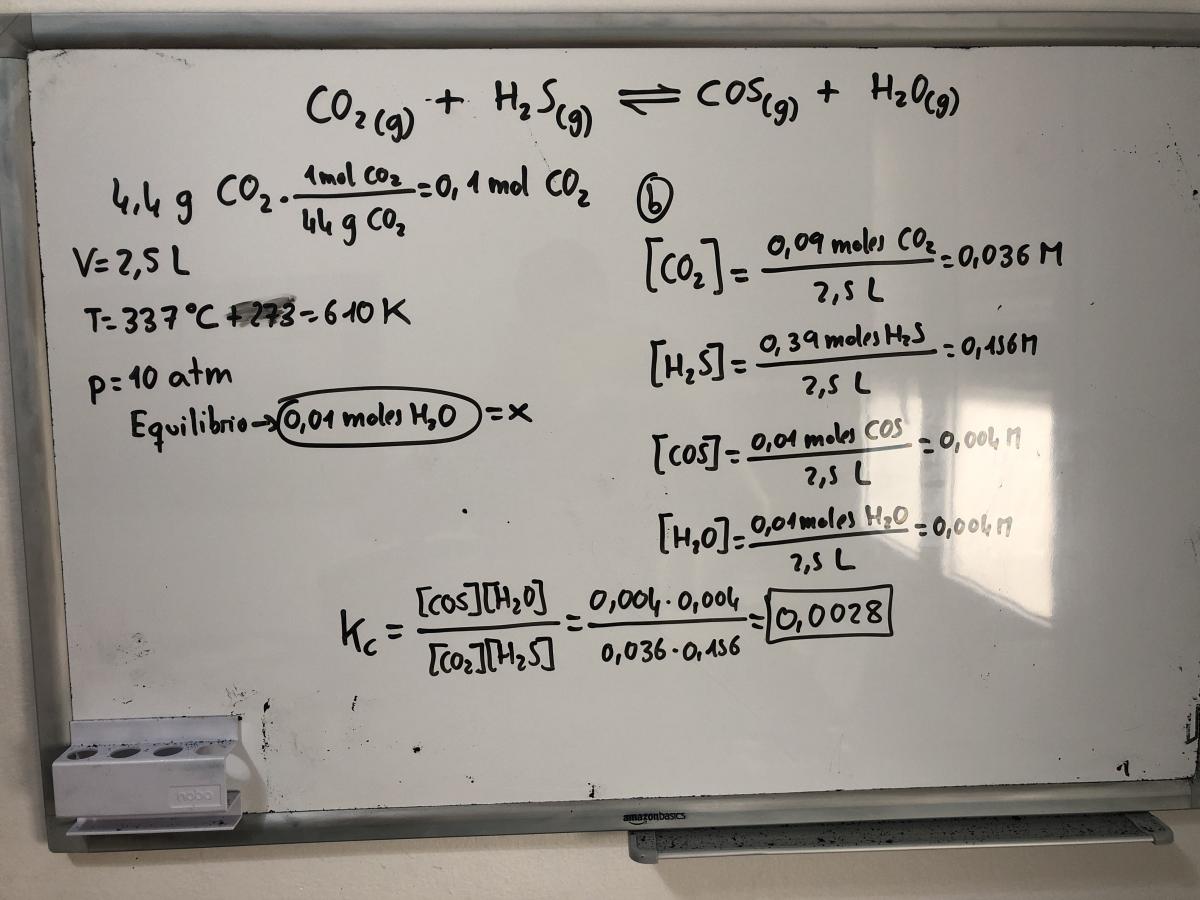 CO₂(g) + H₂S(g) ⇌ COS(g) + H₂O(g)
4,4 g CO₂ · 1 mol CO₂ / 44 g CO₂ = 0,1 mol CO₂
V = 2,5 L
T = 337 °C + 273 = 610 K
p = 10 atm
Equilibrio → 0,01 moles H₂O = x
b
[CO₂] = 0,09 moles CO₂ / 2,5 L = 0,036 M
[H₂S] = 0,39 moles H₂S / 2,5 L = 0,156 M
[COS] = 0,01 moles COS / 2,5 L = 0,004 M
[H₂O] = 0,01 moles H₂O / 2,5 L = 0,004 M
Kc = [COS][H₂O] / [CO₂][H₂S] = 0,004 · 0,004 / 0,036 · 0,156 = 0,0028
nobo
amazonbasics